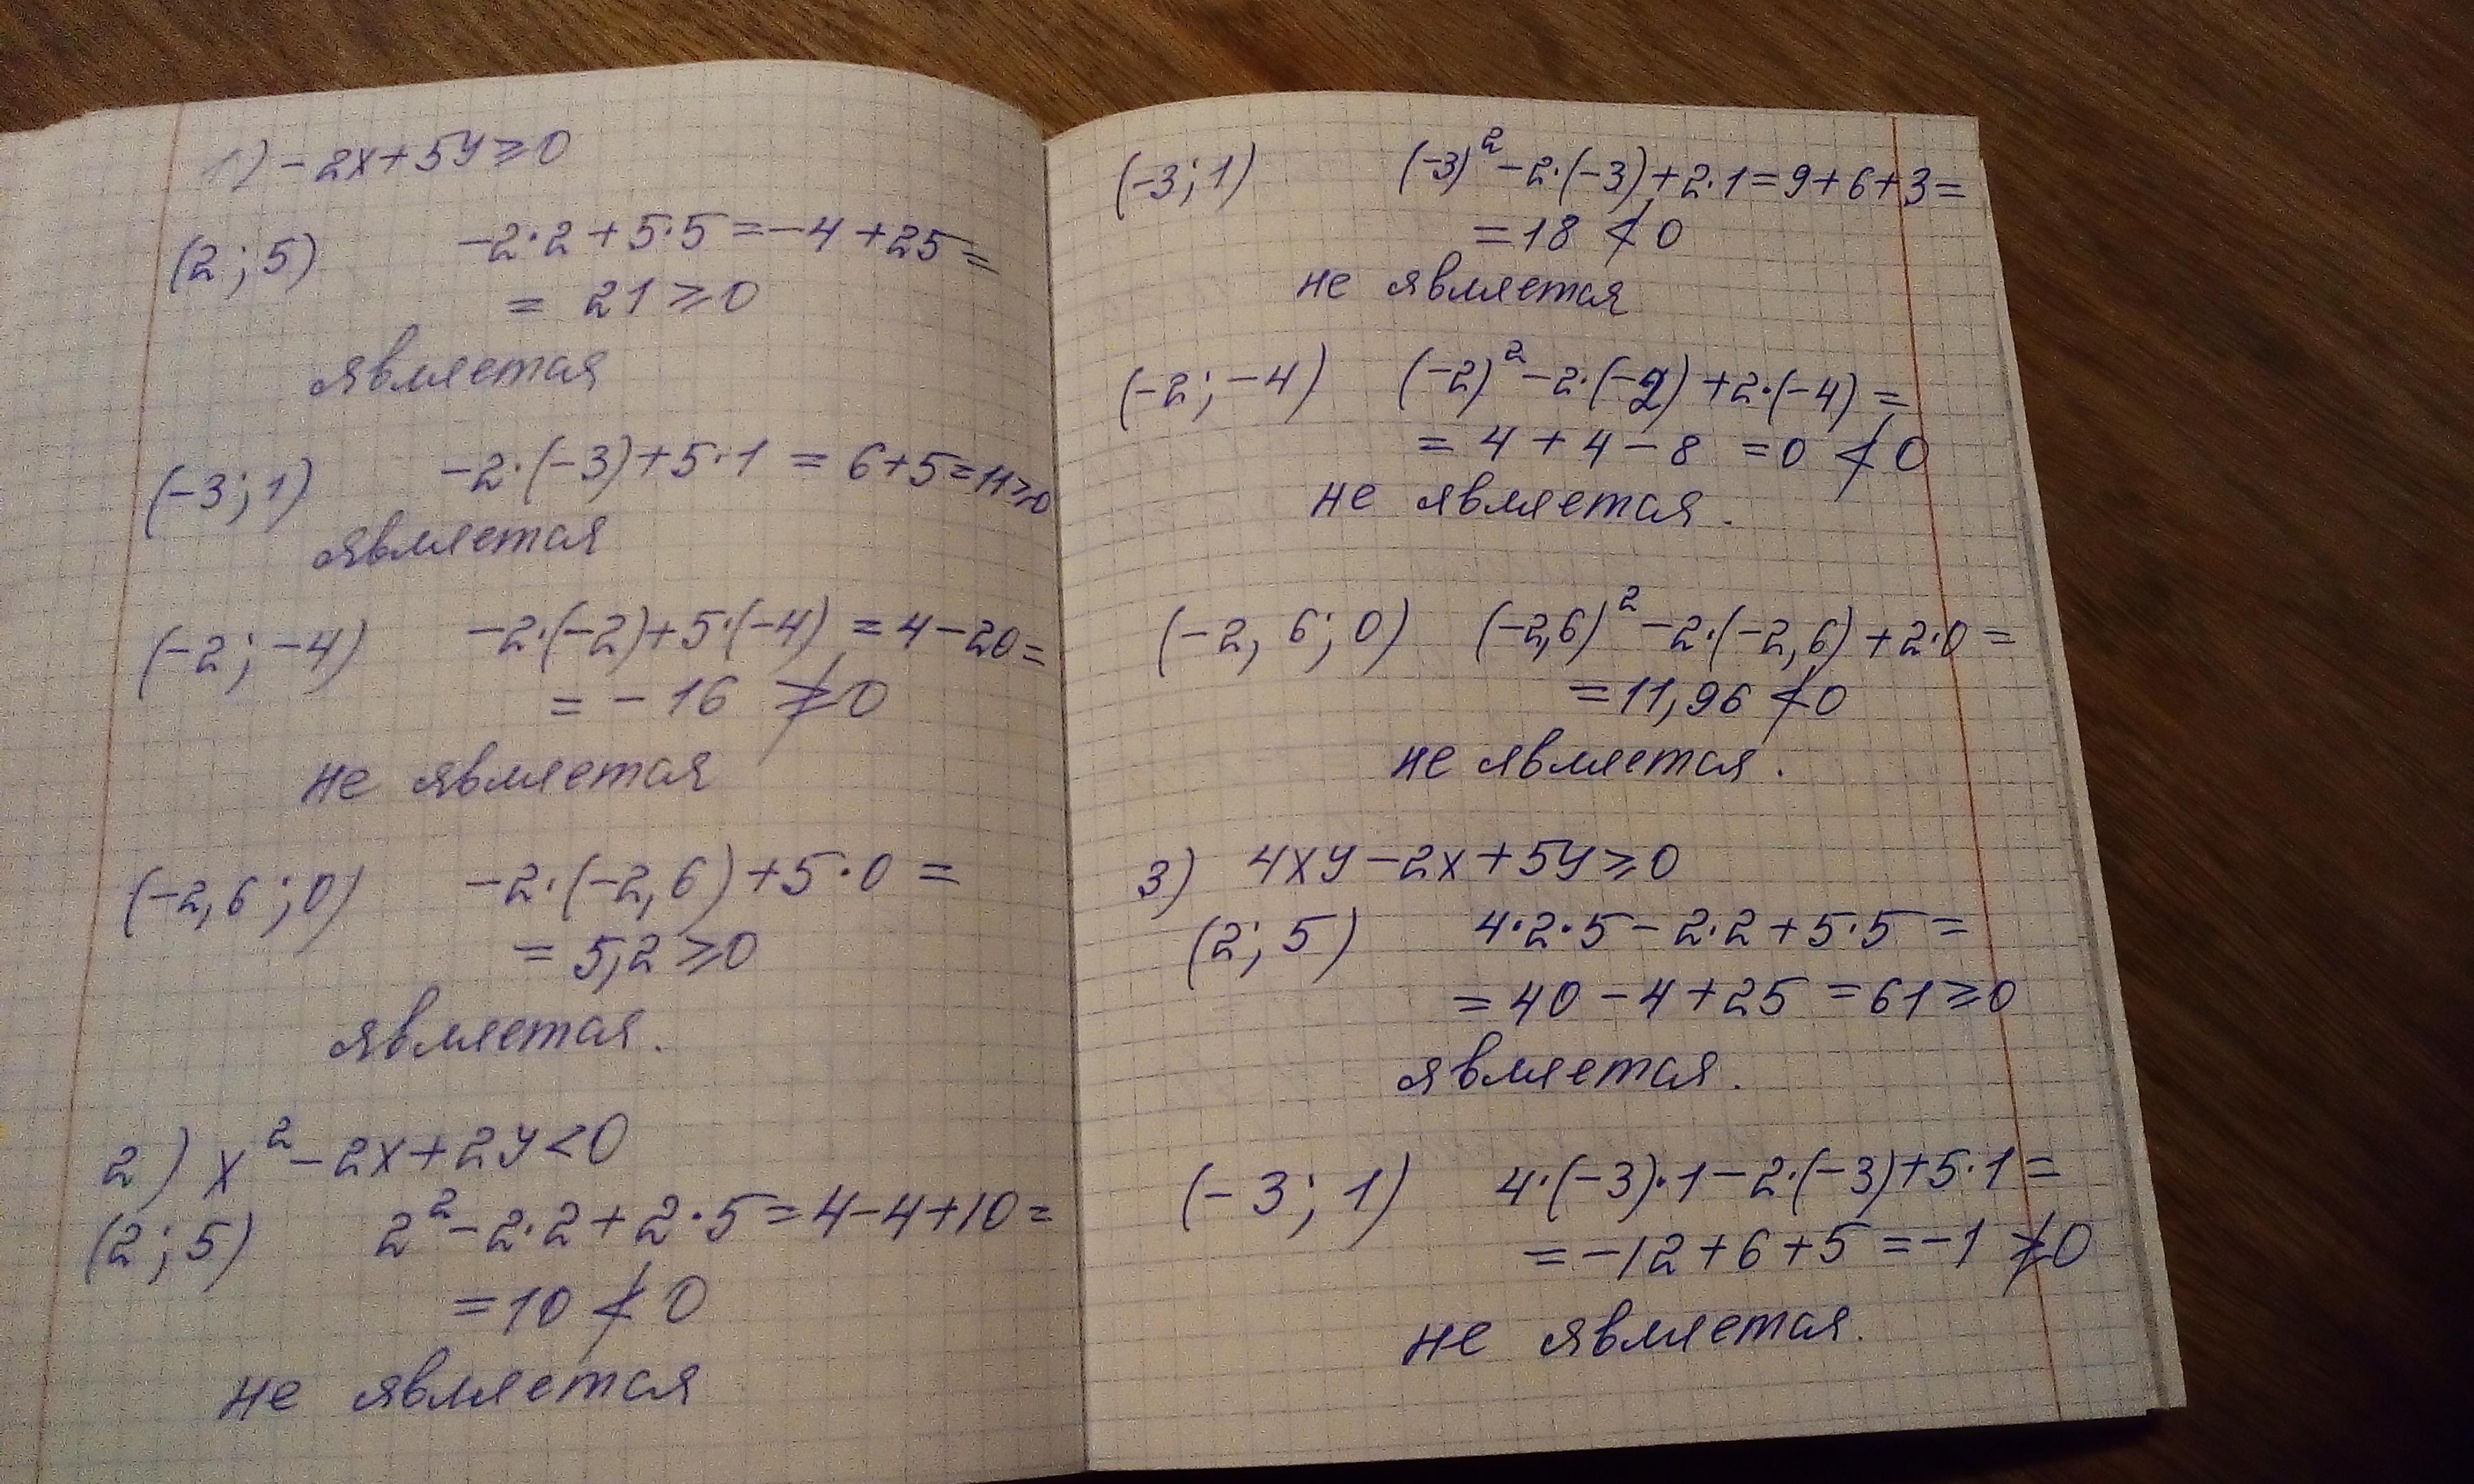 1) -2x+5y≥0
(2; 5) -2·2+5·5=-4+25=
= 21≥0
является
(-3; 1) -2·(-3)+5·1 = 6+5=11≥0
является
(-2; -4) -2·(-2)+5·(-4) = 4-20=
= -16 ≱0
не является
(-2,6; 0) -2·(-2,6)+5·0 =
= 5,2≥0
является.
2) x²-2x+2y<0
(2; 5) 2²-2·2+2·5=4-4+10=
=10 ≮0
не является
(-3; 1) (-3)²-2·(-3)+2·1=9+6+3=
=18 ≮0
не является
(-2; -4) (-2)²-2·(-2)+2·(-4) =
= 4+4-8 =0 ≮0
не является.
(-2,6; 0) (-2,6)²-2·(-2,6)+2·0=
=11,96 ≮0
не является.
3) 4xy-2x+5y≥0
(2; 5) 4·2·5-2·2+5·5=
=40-4+25=61≥0
является.
(-3; 1) 4·(-3)·1-2·(-3)+5·1=
=-12+6+5=-1 ≱0
не является.